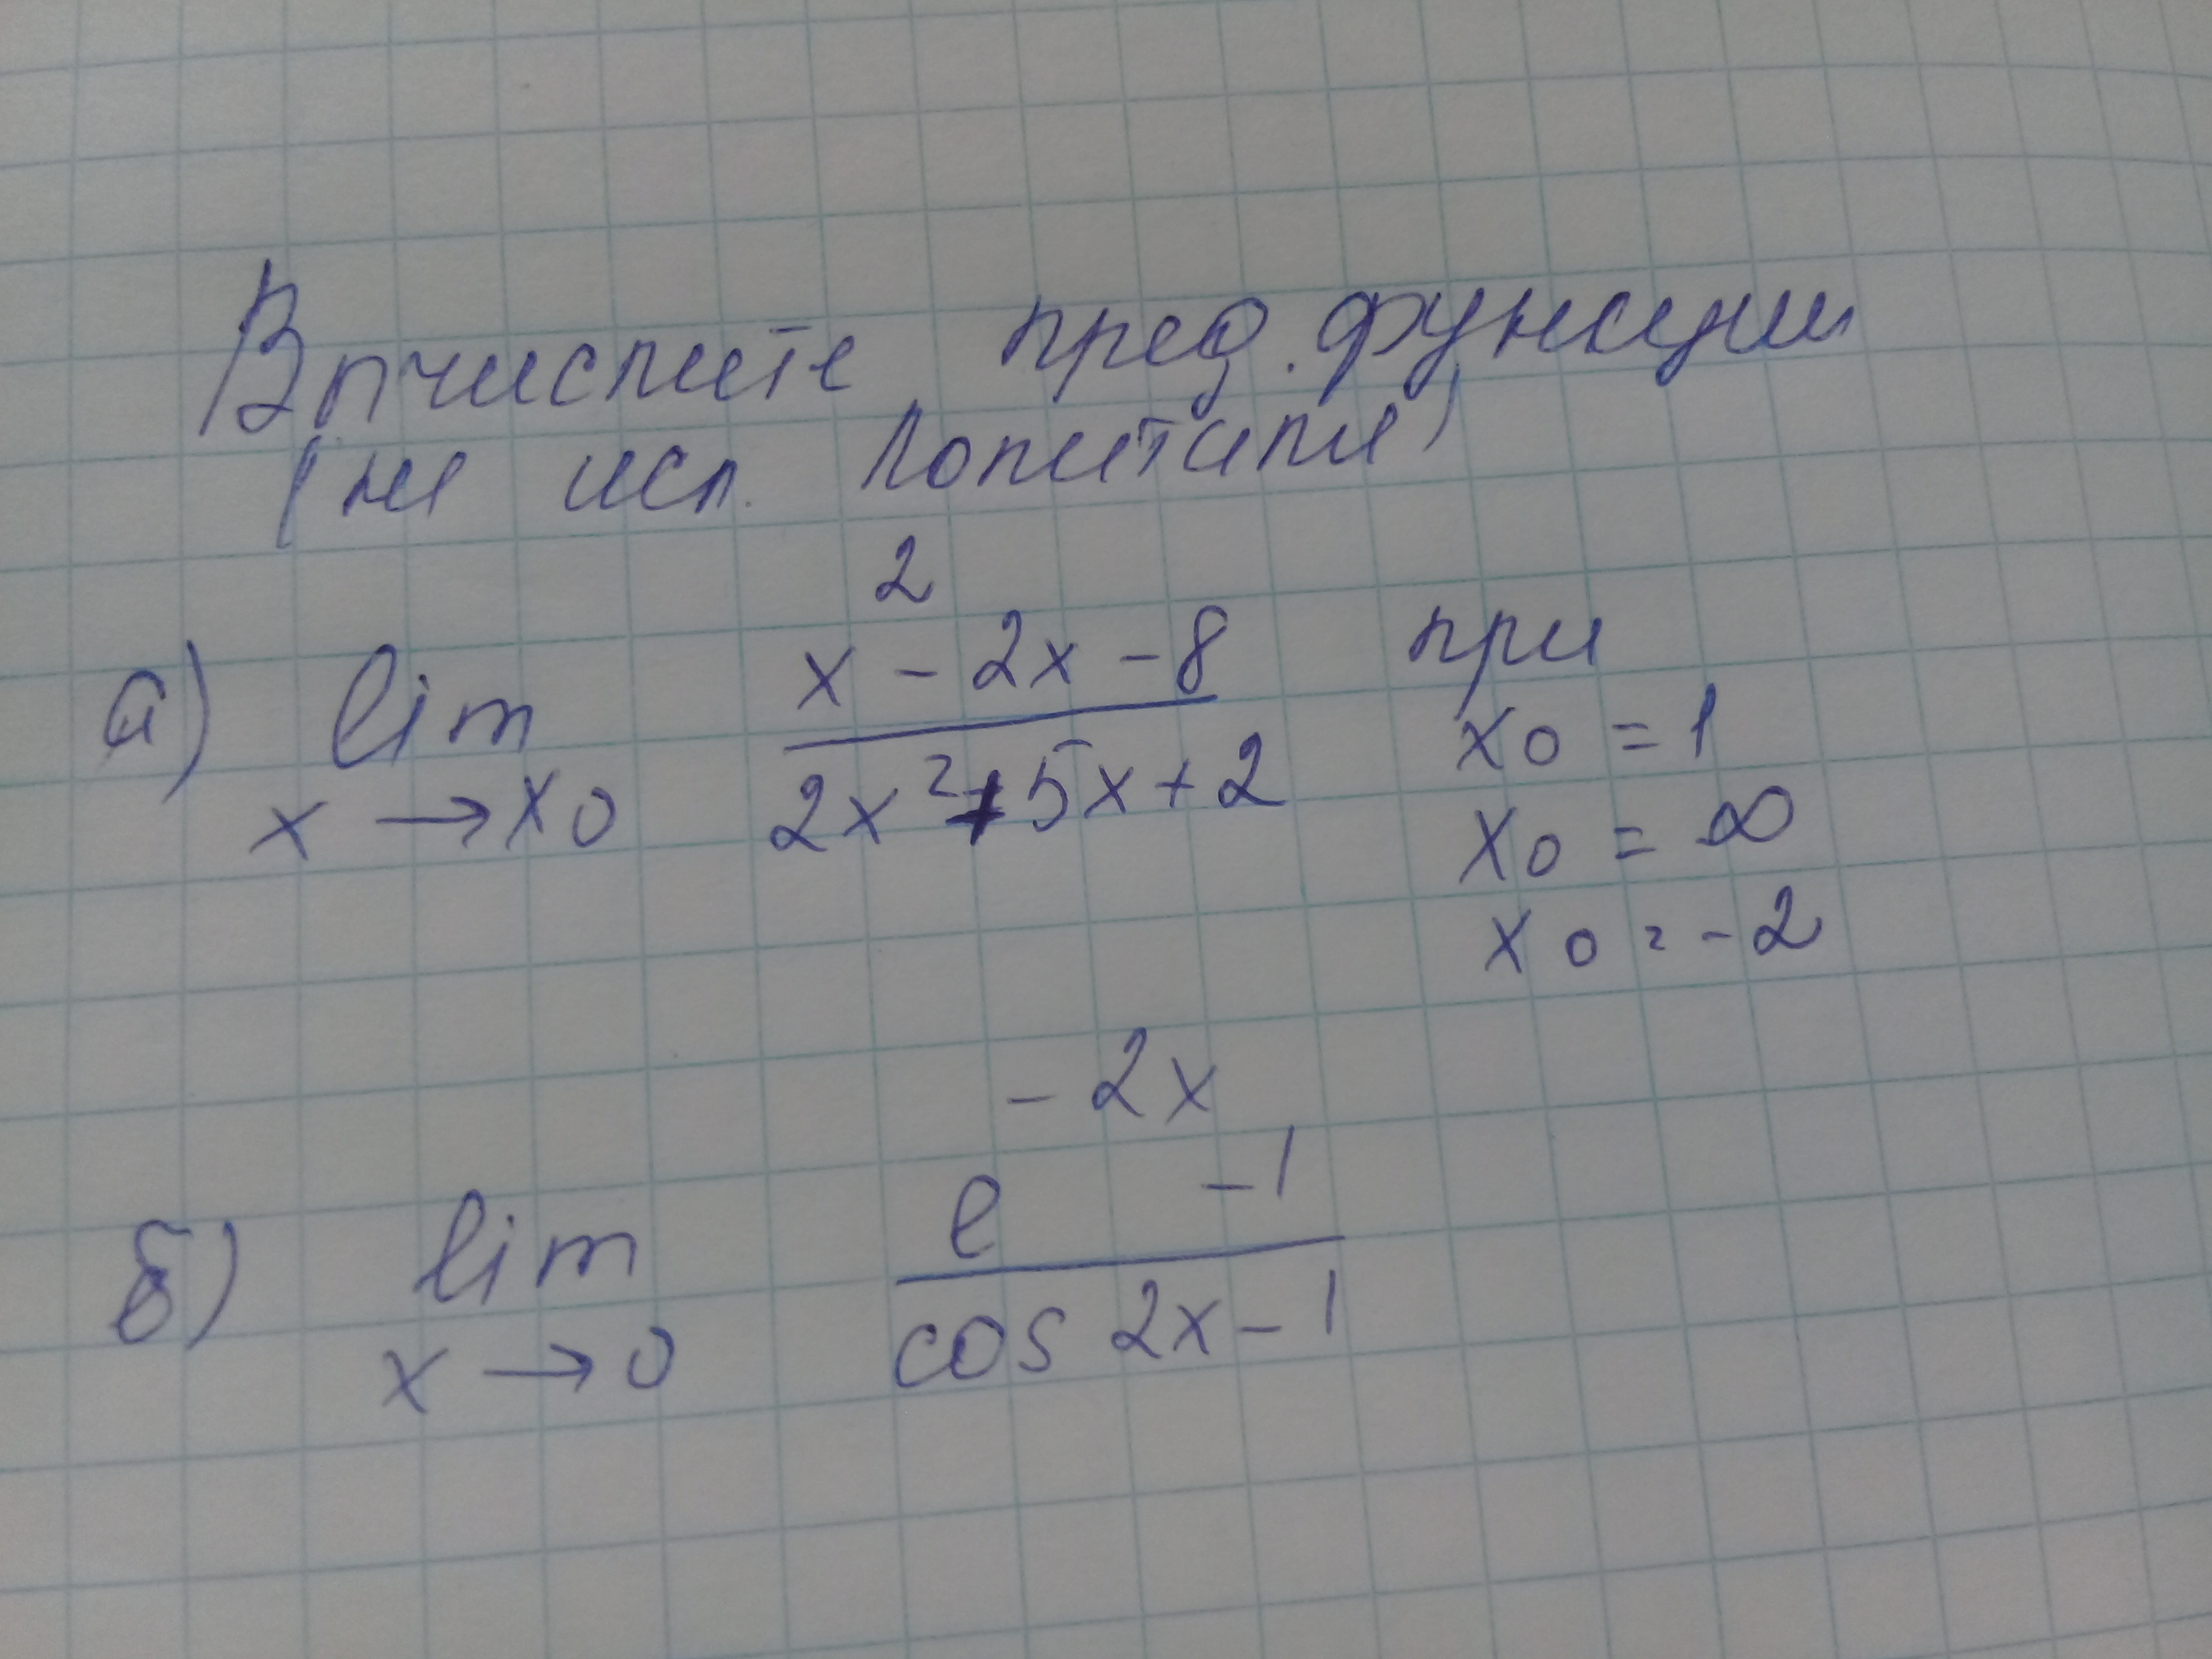 Вычислите пред. функции
(не исп. Лопиталя)
а) lim x→x0 (x^2 - 2x - 8)/(2x^2 + 5x + 2) при
x0 = 1
x0 = ∞
x0 = -2
б) lim x→0 (e^(-2x) - 1)/(cos 2x - 1)